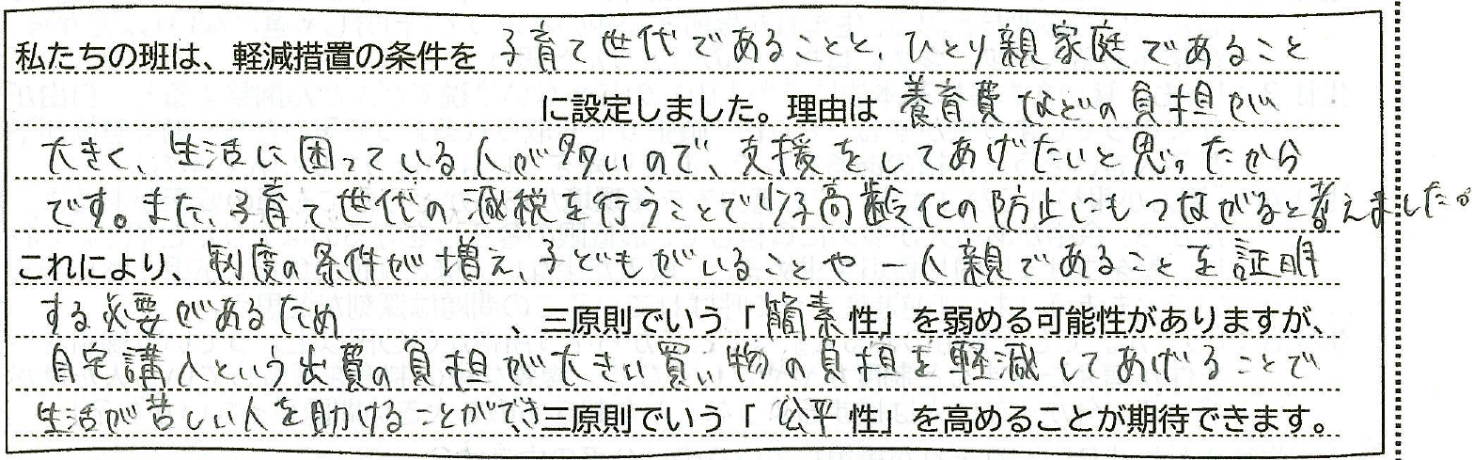 私たちの班は、軽減措置の条件を 子育て世代であることと、ひとり親家庭であること
に設定しました。理由は 養育費などの負担が
大きく、生活に困っている人が多いので、支援をしてあげたいと思ったから
です。また、子育て世代の減税を行うことで少子高齢化の防止にもつながると考えました。
これにより、制度の条件が増え、子どもがいることや一人親であることを証明
する必要があるため、三原則でいう「簡素性」を弱める可能性がありますが、
自宅講入という出費の負担が大きい買い物の負担を軽減してあげることで
生活が苦しい人を助けることができ、三原則でいう「公平性」を高めることが期待できます。